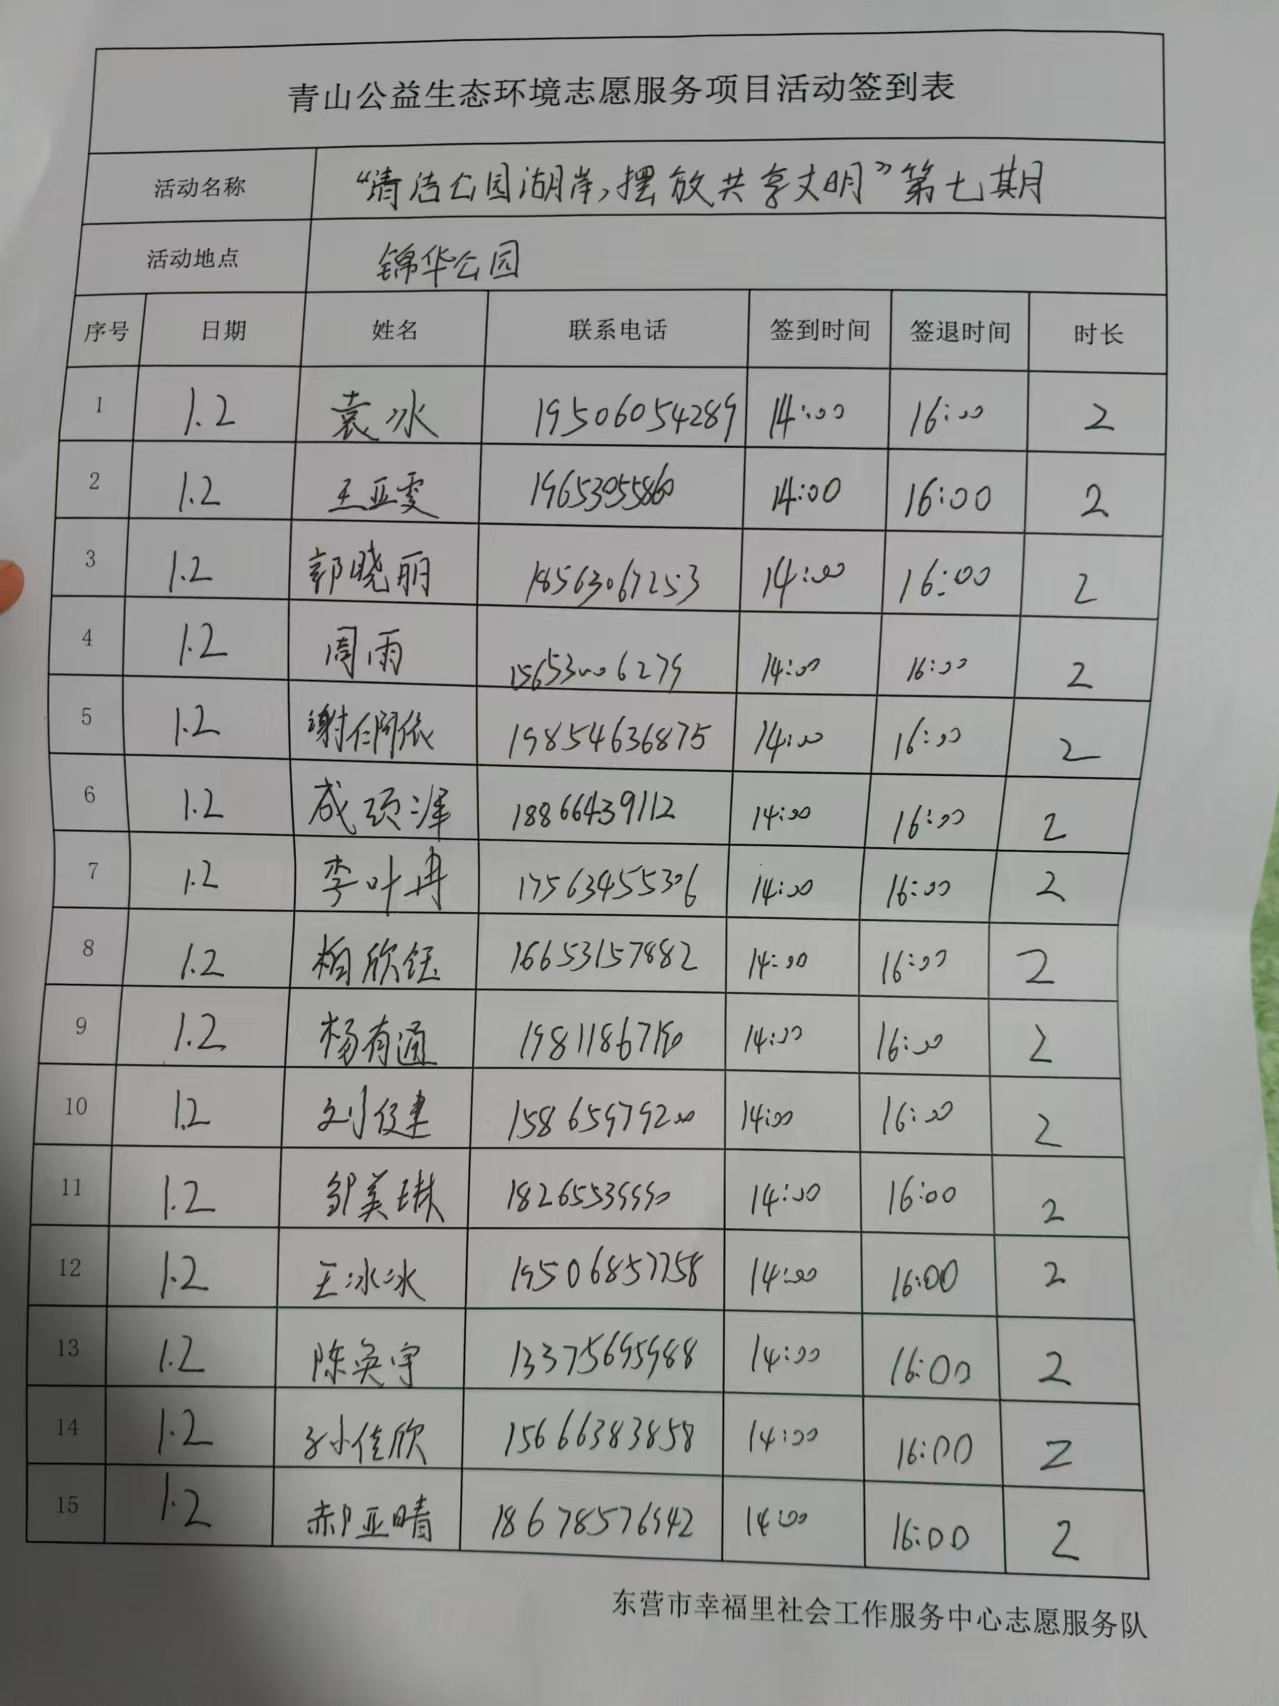 青山公益生态环境志愿服务项目活动签到表
活动名称 “清洁公园湖岸，摆放共享文明”第七期
活动地点 锦华公园
序号 日期 姓名 联系电话 签到时间 签退时间 时长
1 1.2 袁冰 19506054289 14:00 16:00 2
2 1.2 王亚雯 19653055860 14:00 16:00 2
3 1.2 郭晓丽 18563067253 14:00 16:00 2
4 1.2 周雨 15653006279 14:00 16:00 2
5 1.2 19854636875 14:00 16:00 2
6 1.2 18866439112 14:00 16:00 2
7 1.2 李叶冉 17563455306 14:00 16:00 2
8 1.2 柏欣钰 16653157882 14:00 16:00 2
9 1.2 杨有通 19811867190 14:00 16:00 2
10 1.2 刘俊建 15865979200 14:00 16:00 2
11 1.2 邹美琳 18265539990 14:00 16:00 2
12 1.2 王冰冰 19506857758 14:00 16:00 2
13 1.2 陈奂宇 13375695988 14:00 16:00 2
14 1.2 孙佳欣 15666383858 14:00 16:00 2
15 1.2 郝亚晴 18678576942 14:00 16:00 2
东营市幸福里社会工作服务中心志愿服务队